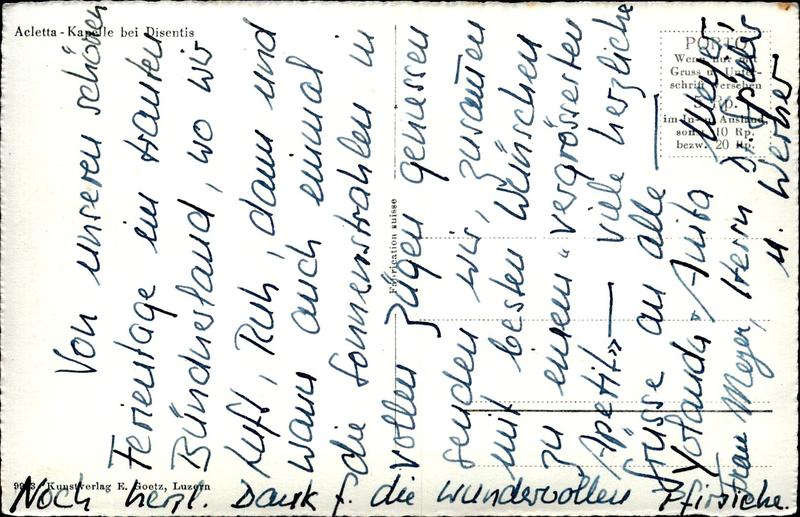 Acletta - Kapelle bei Disentis
PORTO
Wenn nur mit
Gruss u. Unter-
schrift versehen
5 Rp.
im In- u. Ausland,
sonst 10 Rp.
bezw. 20 Rp.
Fabrication suisse
Von unseren schönen
Ferientage im trauten
Bündnerland, wo wir
Luft, Ruh, dann und
wann auch einmal
die Sonnenstrahlen in
vollen Zügen geniessen
senden wir, zusamen
mit besten Wünschen
zu einem "vergrösserten
Apetit" — viele herzliche
Grüsse an alle
Yolanda Anita Meyer
Frau Meyer, Herrn Dr.
u. Werner
Noch herzl. Dank f. die wundervollen Pfirsiche.
Kunstverlag E. Goetz, Luzern